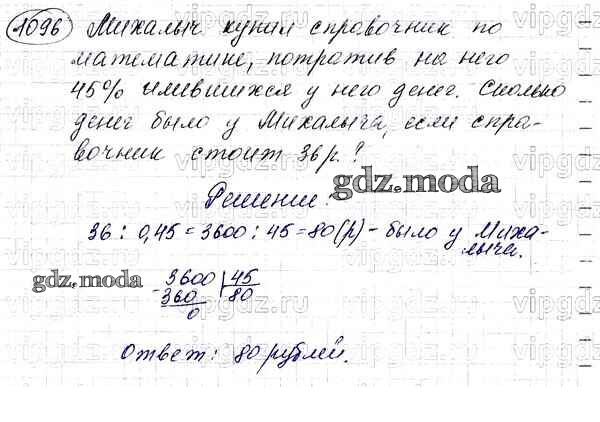 1096 Михалыч купил справочник по
математике, потратив на него
45% имевшихся у него денег. Сколько
денег было у Михалыча, если спра-
вочник стоит 36 р.?
Решение:
gdz.moda
36 : 0,45 = 3600 : 45 = 80 (р) - было у Миха-
лыча.
gdz.moda
3600 | 45
- 360 80
0
Ответ: 80 рублей.
vipgdz.ru